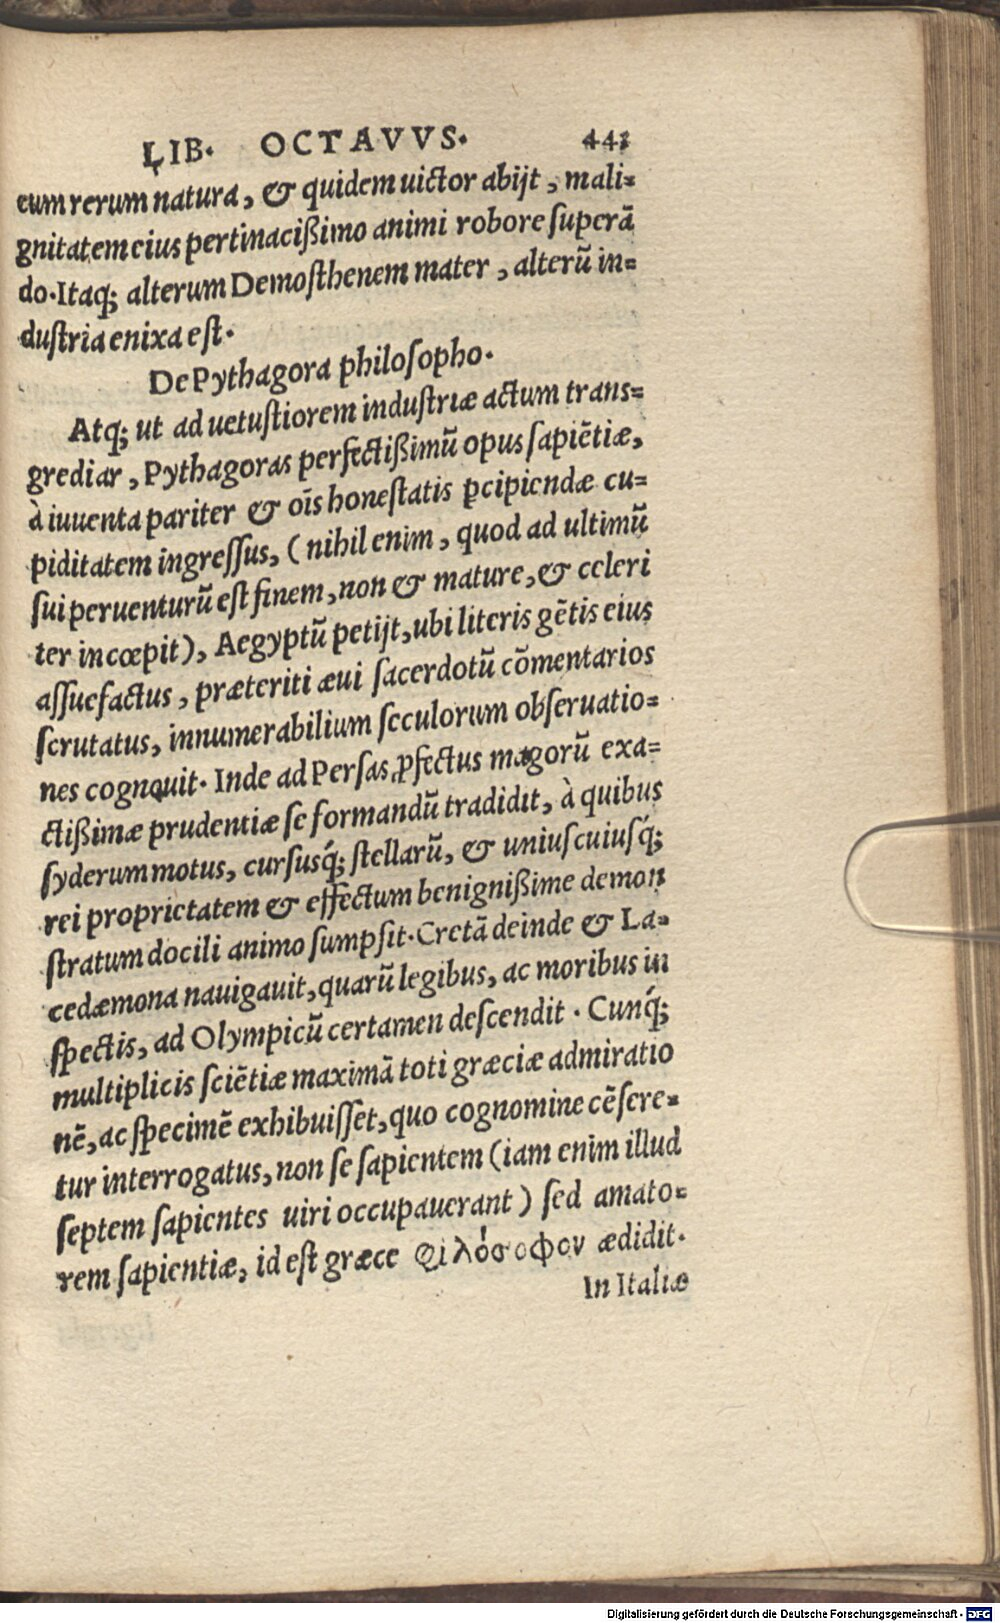 LIB. OCTAVVS. 441
cum rerum natura, & quidem uictor abijt, mali-
gnitatem eius pertinacißimo animi robore ſuperā
do. Itaq; alterum Demoſthenem mater, alterū in-
duſtria enixa eſt.
De Pythagora philoſopho.
Atq; ut ad uetuſtiorem induſtriæ actum trans-
grediar, Pythagoras perfectißimū opus ſapiētiæ,
à iuuenta pariter & oīs honeſtatis ꝑcipiendæ cu-
piditatem ingreſſus, (nihil enim, quod ad ultimū
ſui peruenturū eſt finem, non & mature, & celeri
ter incœpit), Aegyptū petijt, ubi literis gētis eius
aſſuefactus, præteriti æui ſacerdotū cōmentarios
ſcrutatus, innumerabilium ſeculorum obſeruatio-
nes cognouit. Inde ad Perſas ꝓfectus magorū exa-
ctißimæ prudentiæ ſe formandū tradidit, à quibus
ſyderum motus, curſusq́; ſtellarū, & uniuſcuiuſq́;
rei proprietatem & effectum benignißime demon
ſtratum docili animo ſumpſit. Cretā deinde & La-
cedæmona nauigauit, quarū legibus, ac moribus in
ſpectis, ad Olympicū certamen deſcendit. Cunq́;
multiplicis ſciētiæ maximā toti græciæ admiratio
nē, ac ſpecimē exhibuiſſet, quo cognomine cēſere-
tur interrogatus, non ſe ſapientem (iam enim illud
ſeptem ſapientes uiri occupauerant) ſed amato-
rem ſapientiæ, id eſt græce φιλόσοφον ædidit.
In Italiæ
Digitalisierung gefördert durch die Deutsche Forschungsgemeinschaft - DFG